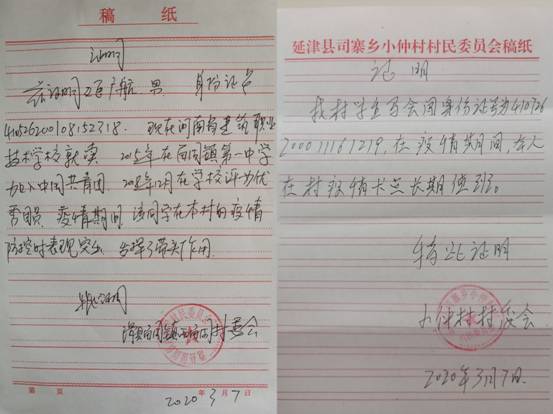 稿 纸
证明
兹证明 男, 身份证号
410526200108152318. 现在河南省建筑职业
技术学校就读 2015年在 第一中学
加入中国共青团. 年12月在学校评为优
秀团员. 疫情期间 该同学在本村的疫情
防控时表现突出 发挥了带头作用.
特此证明
村委会
第 页
2020年3月7日
延津县司寨乡小仲村村民委员会稿纸
证明
我村学生 身份证号410726
200011161219, 在疫情期间, 本人
在村疫情卡点长期值班.
特此证明
小仲村村委会
2020年3月7日.